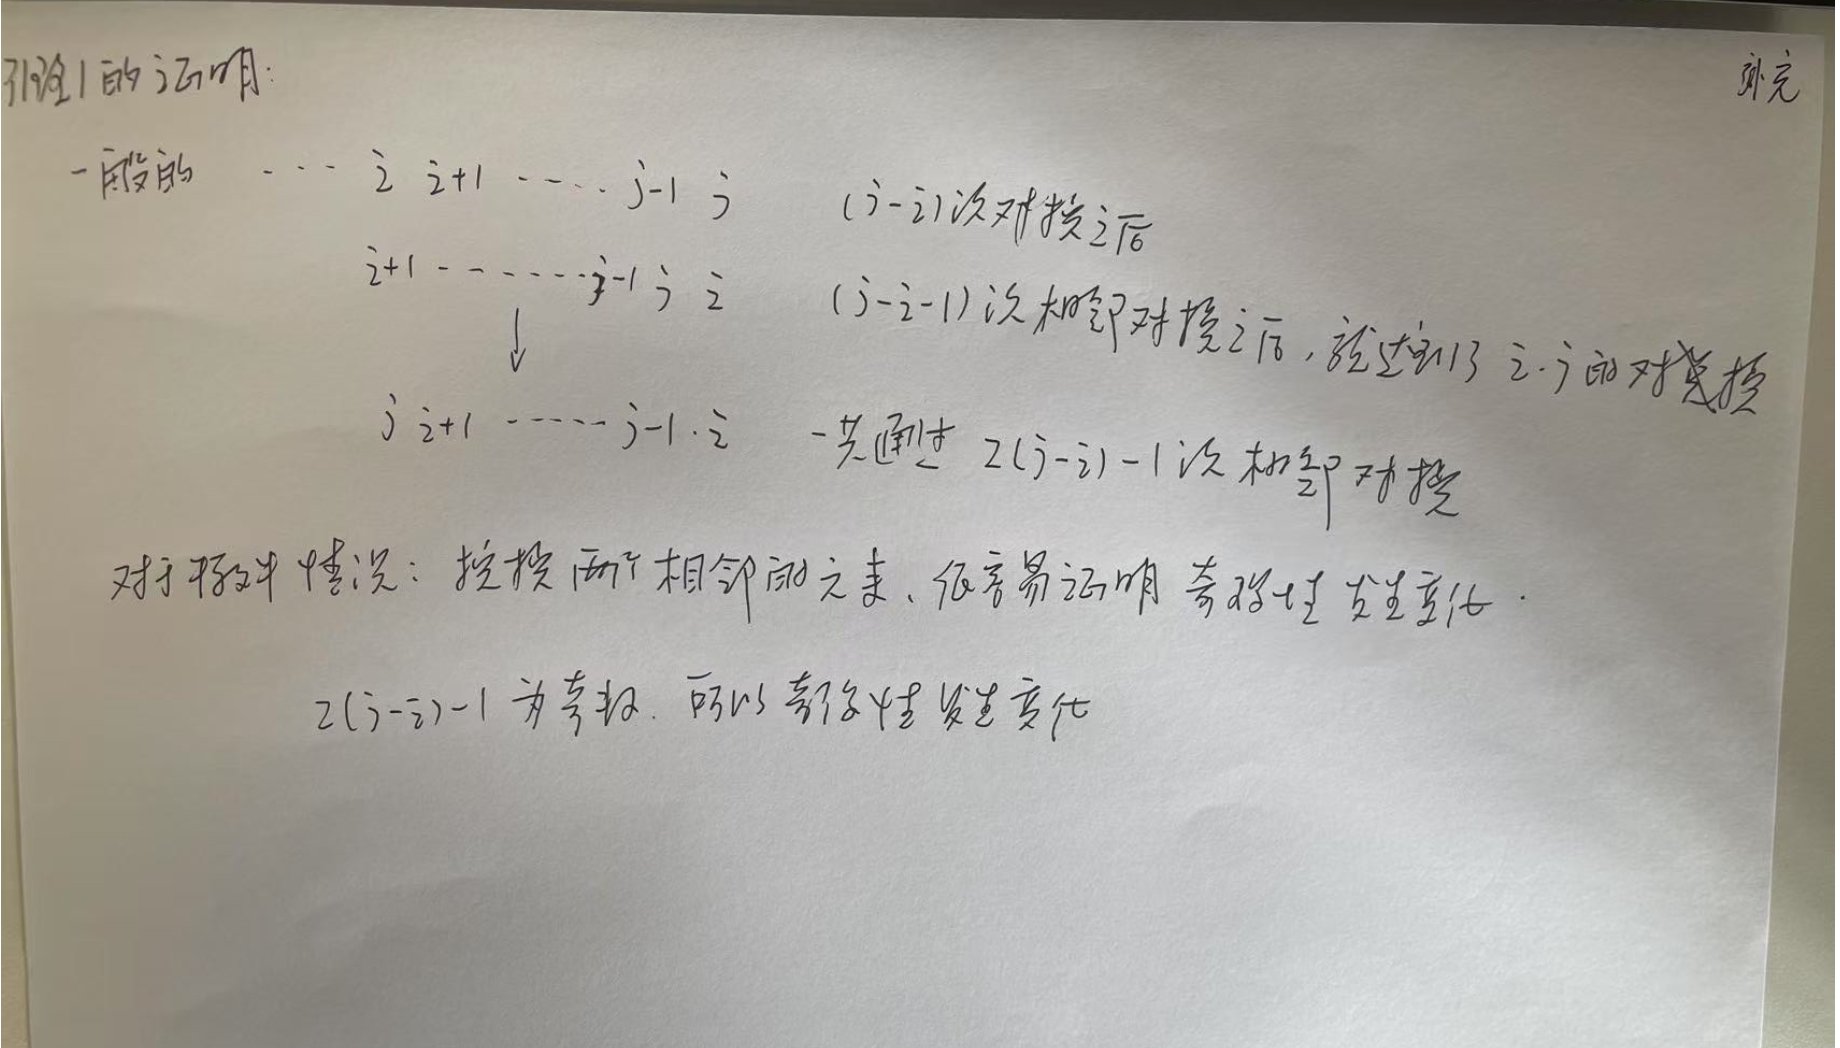 引理1的证明:
补充
一般的 ... i i+1 ..... j-1 j (j-i)次对换之后
i+1 ........ j-1 j i (j-i-1)次相邻对换之后,就达到了 i.j的对换
↓
j i+1 ..... j-1 . i 一共通过 2(j-i)-1次相邻对换
对于特殊情况:控换两个相邻的元素、很容易证明奇偶性发生变化.
2(j-i)-1为奇数. 所以奇偶性发生变化